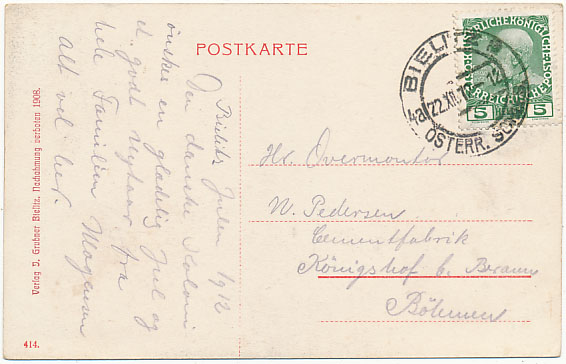 POSTKARTE
Bielitz Julen 1912
Den danske Koloni
ønsker en glædelig Jul og
et godt Nytaar fra
hele Familien Mogensen
alt vel her.
Hr. Overmontør
N. Pedersen
Cementfabrik
Königshof b. Beraun
Böhmen
BIELITZ
4a 22.XII.12
ÖSTERR.
5 5
Verlag D. Grubner Bielitz. Nachahmung verboten 1908.
414.